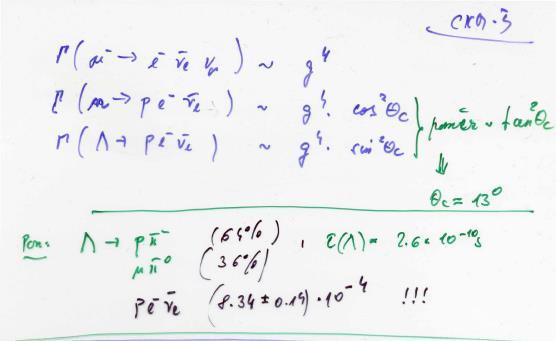 CKM-3
Γ(μ⁻ → e⁻ ν̄e νμ) ~ g⁴
Γ(n → p e⁻ ν̄e) ~ g⁴. cos²θc
Γ(Λ → p e⁻ ν̄e) ~ g⁴. sin²θc
poměr ~ tan²θc
⇓
θc = 13°
Pozn: Λ → p π⁻ (64%), τ(Λ) = 2.6 × 10⁻¹⁰ s
n π⁰ (36%)
p e⁻ ν̄e (8.34 ± 0.14) · 10⁻⁴ !!!